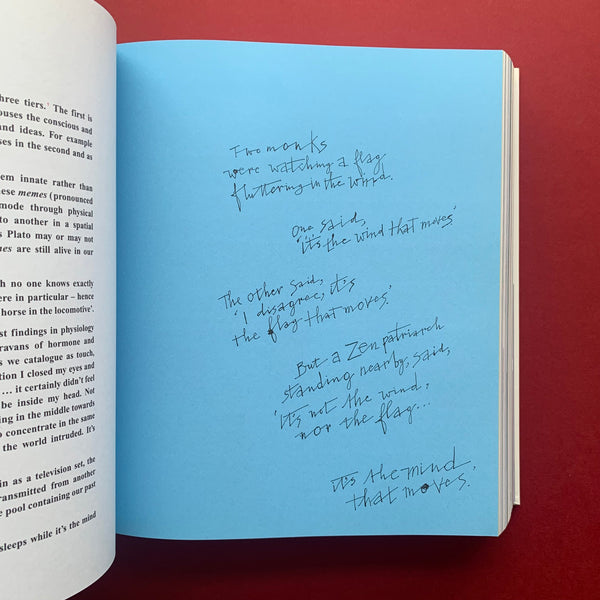 hree tiers.¹ The first is
ouses the conscious and
and ideas. For example
ses in the second and as
em innate rather than
ese memes (pronounced
mode through physical
to another in a spatial
s Plato may or may not
mes are still alive in our
h no one knows exactly
ere in particular – hence
horse in the locomotive'.
st findings in physiology
aravans of hormone and
s we catalogue as touch,
tion I closed my eyes and
… it certainly didn't feel
be inside my head. Not
ing in the middle towards
o concentrate in the same
the world intruded. It's
in as a television set, the
ransmitted from another
e pool containing our past
sleeps while it's the mind
Two monks
were watching a flag
fluttering in the wind.
One said,
'it's the wind that moves'
The other said,
'I disagree, it's
the flag that moves.'
But a Zen patriarch
standing nearby, said,
'it's not the wind,
nor the flag...
it's the mind
that moves.'